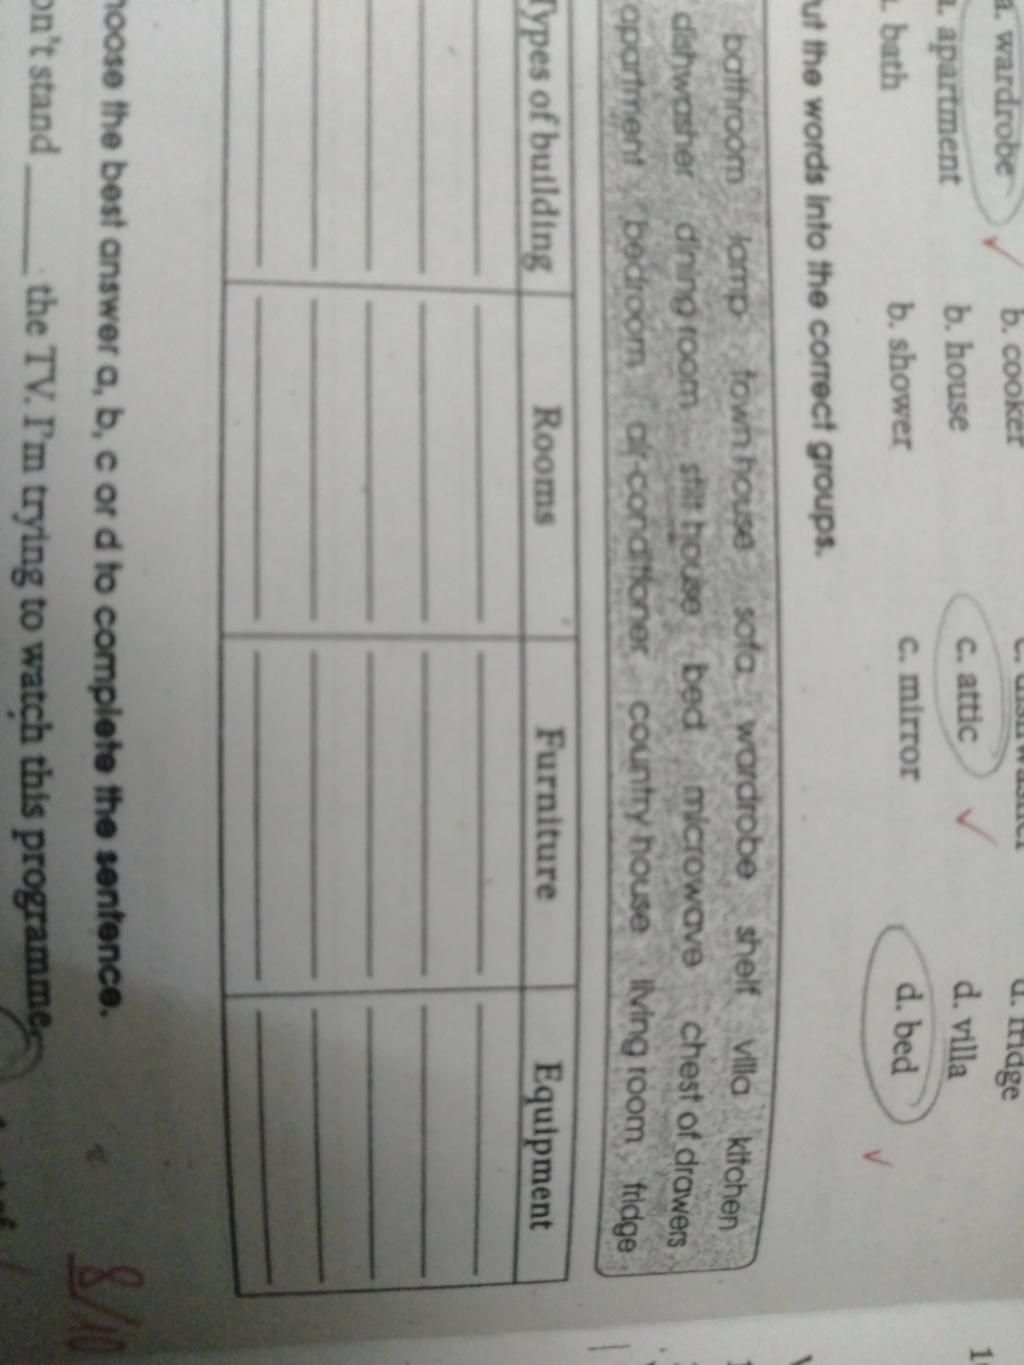 a. wardrobe b. cooker d. fridge
a. apartment b. house c. attic d. villa
a. bath b. shower c. mirror d. bed
ut the words into the correct groups.
bathroom lamp town house sofa wardrobe shelf villa kitchen
dishwasher dining room stilt house bed microwave chest of drawers
apartment bedroom air-conditioner country house living room fridge
Types of building Rooms Furniture Equipment
hoose the best answer a, b, c or d to complete the sentence.
on't stand ______ the TV. I'm trying to watch this programme.
8/10